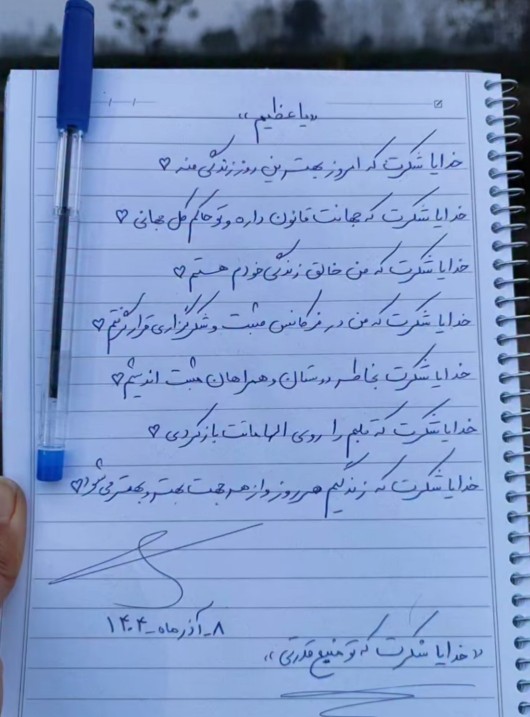 «یا عظیم»
خدایا شکرت که امروز بهترین روز زندگی منه ♡
خدایا شکرت که جهانت قانون داره و تو حاکم کل جهانی ♡
خدایا شکرت که من خالق زندگی خودم هستم ♡
خدایا شکرت که من در فرکانس مثبت و شکرگزاری قرار گرفتم ♡
خدایا شکرت بخاطر دوستان و همراهان مثبت اندیشم ♡
خدایا شکرت که قلبم را روی الهاماتت باز کردی ♡
خدایا شکرت که زندگیم هر روز و از هر جهت بهتر و بهتر می شود ♡
۸_آذر ماه_۱۴۰۴
«خدایا شکرت که تو منبع قدرتی»